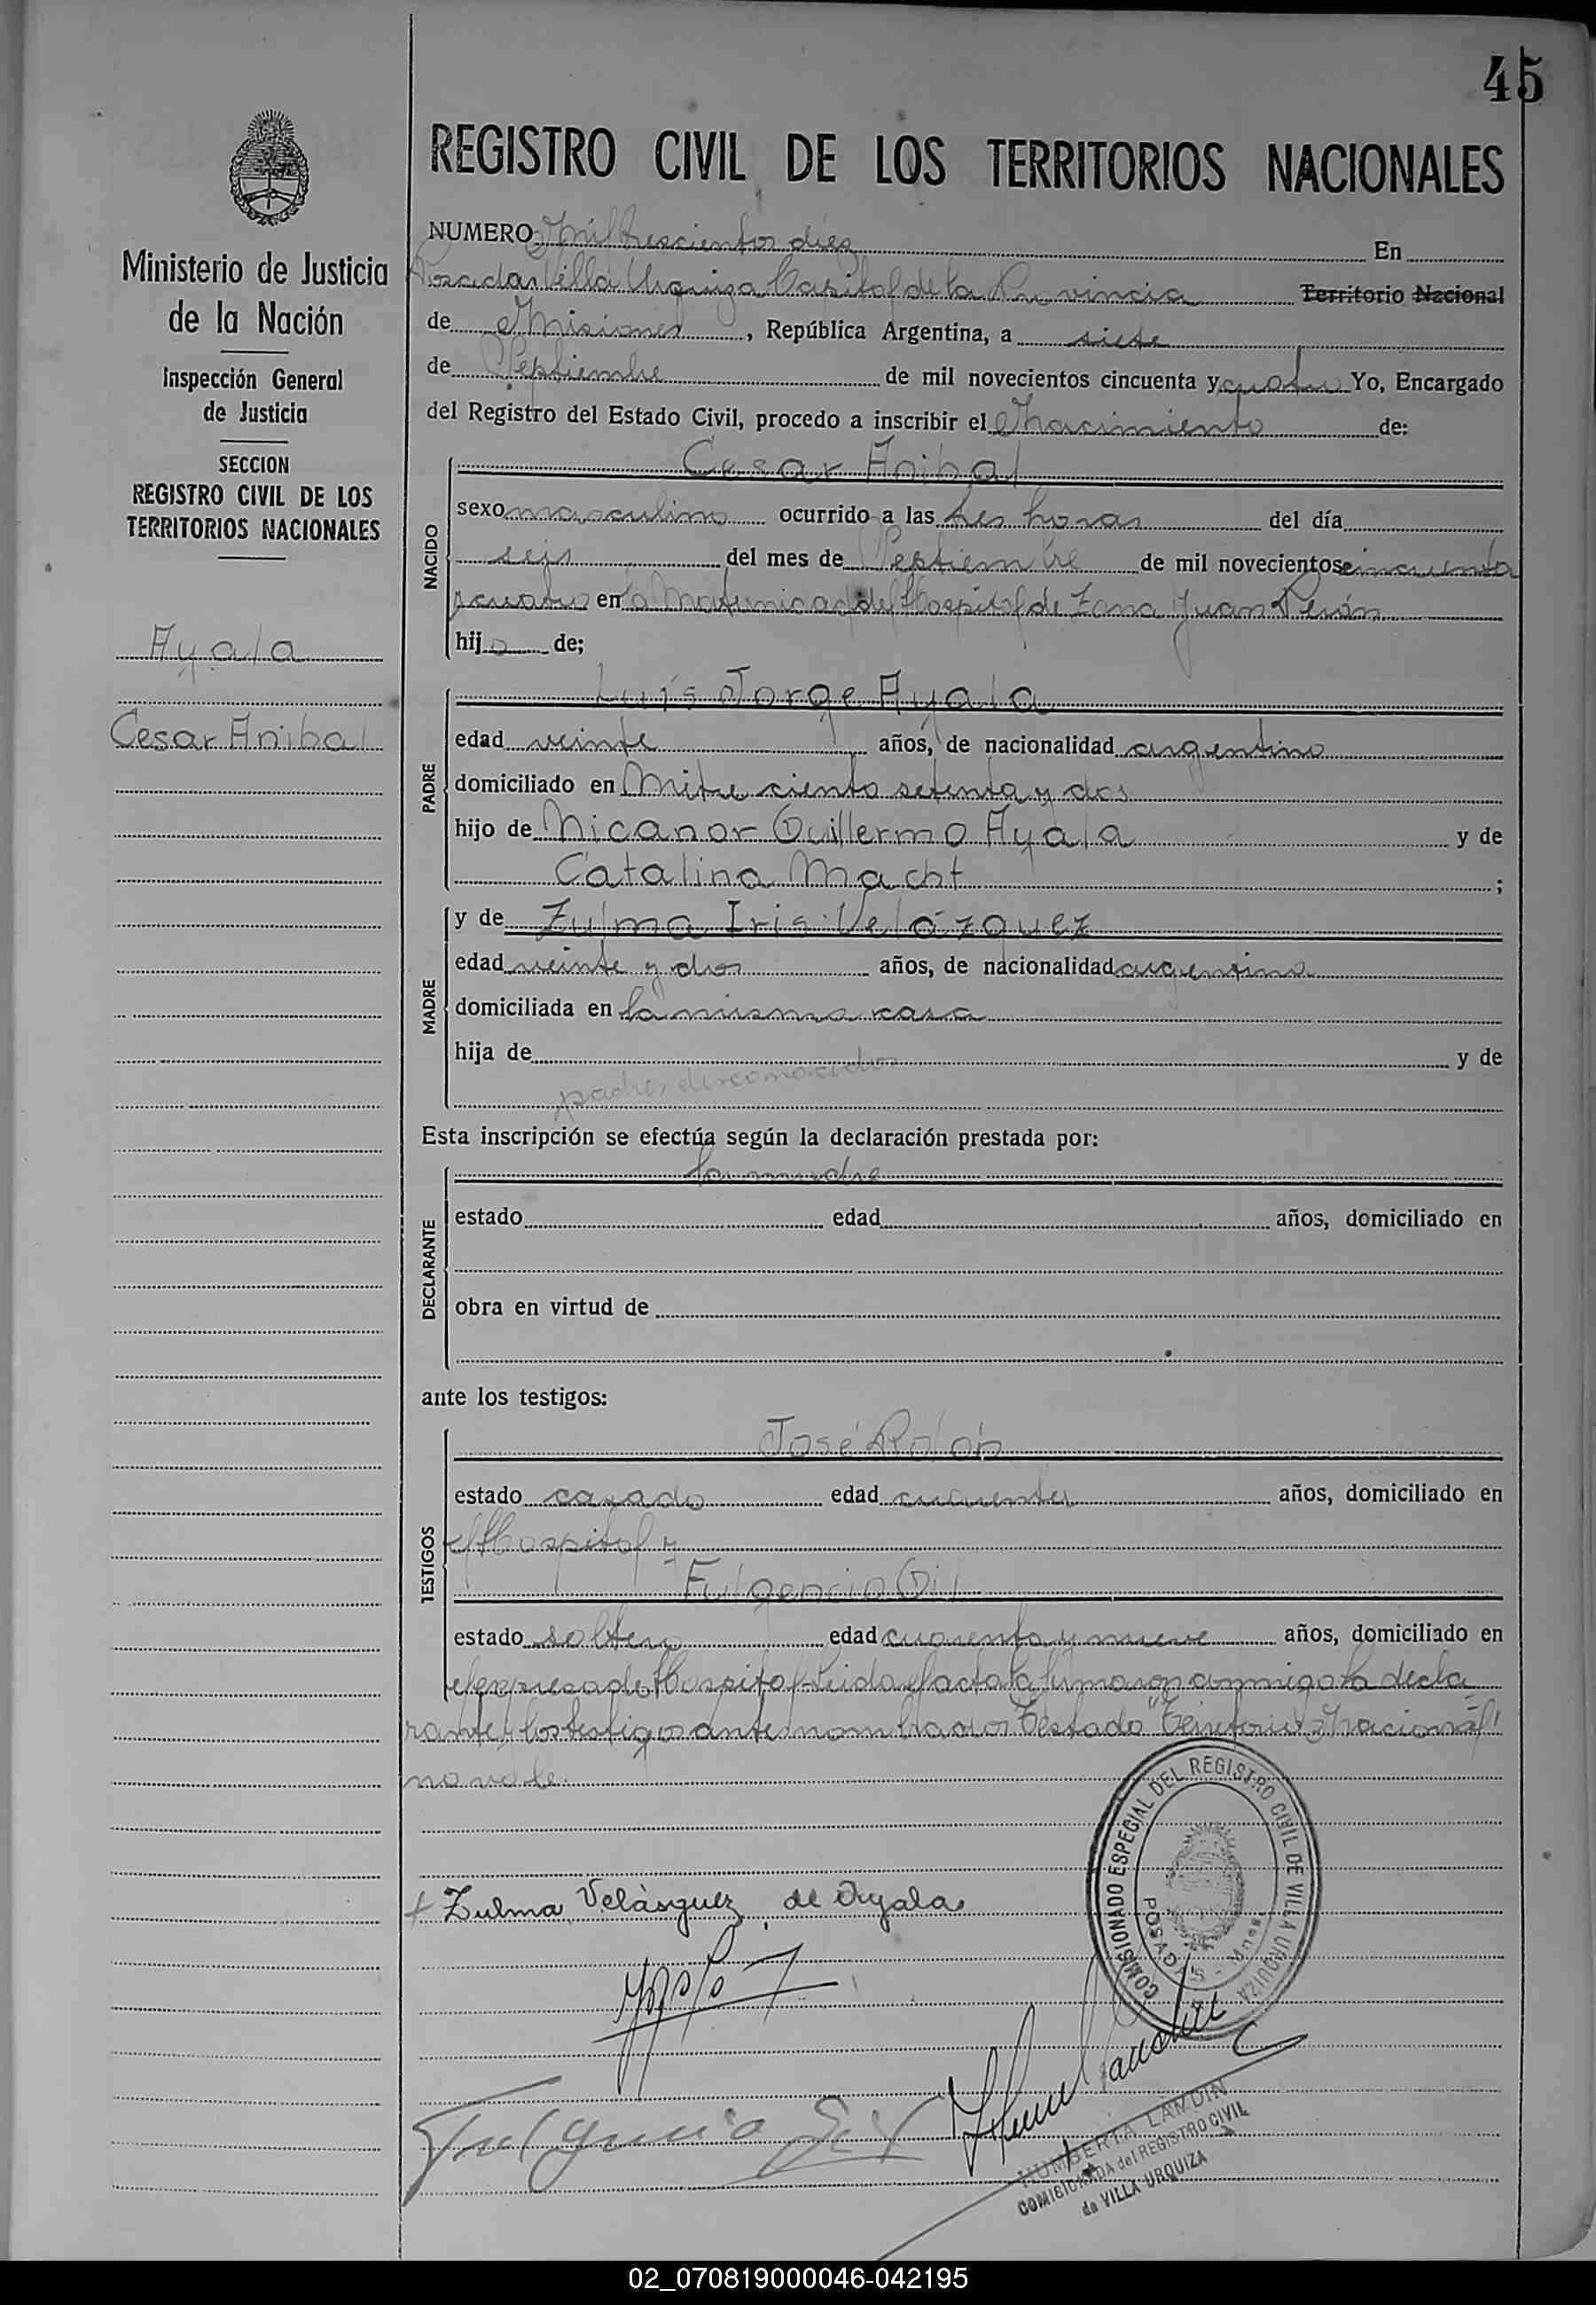 45
REGISTRO CIVIL DE LOS TERRITORIOS NACIONALES
Ministerio de Justicia
de la Nación
Inspección General
de Justicia
SECCION
REGISTRO CIVIL DE LOS
TERRITORIOS NACIONALES
Ayala
Cesar Anibal
NUMERO Mil trescientos diez En
Posadas Villa Urquiza Capital de la Provincia Territorio Nacional
de Misiones, República Argentina, a siete
de Septiembre de mil novecientos cincuenta y cuatro Yo, Encargado
del Registro del Estado Civil, procedo a inscribir el Nacimiento de:
NACIDO
Cesar Anibal
sexo masculino ocurrido a las tres horas del día
seis del mes de Septiembre de mil novecientos cincuenta
y cuatro en la Maternidad del Hospital de Zona Juan Perón
hijo de;
PADRE
Luis Jorge Ayala
edad veinte años, de nacionalidad argentino
domiciliado en Mitre ciento setenta y dos
hijo de Nicanor Guillermo Ayala y de
Catalina Macht ;
MADRE
y de Zulma Iris Velázquez
edad veinte y dos años, de nacionalidad argentina
domiciliada en la misma casa
hija de y de
padres desconocidos
Esta inscripción se efectúa según la declaración prestada por:
DECLARANTE
la madre
estado edad años, domiciliado en
obra en virtud de
ante los testigos:
TESTIGOS
José Rolón
estado casado edad cuarenta años, domiciliado en
el Hospital y
Fulgencio Gil
estado soltero edad cuarenta y nueve años, domiciliado en
el expresado Hospital Leida el acta la firmaron conmigo la decla
rante y los testigos antes nombrados Testado "Territorio Nacional"
no vale.
COMISIONADO ESPECIAL DEL REGISTRO CIVIL DE VILLA URQUIZA
POSADAS - Mnes.
Zulma Velásquez de Ayala
Fulgencio Gil
HUMBERTA LANDIN
COMISIONADA del REGISTRO CIVIL
de VILLA URQUIZA
02_070819000046-042195